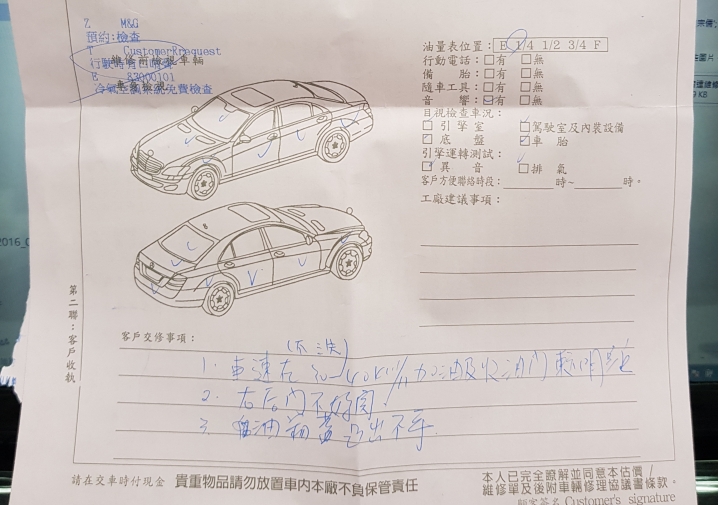 Z M&G
預約:檢查
T Customer request
行駛時
E 83000101
冷氣空調系統免費檢查
油量表位置: E 1/4 1/2 3/4 F
行動電話:□有 □無
備 胎:□有 □無
隨車工具:□有 □無
音 響:□有 □無
目視檢查車況:
□引擎室 □駕駛室及內裝設備
□底 盤 □車 胎
引擎運轉測試:
□異 音 □排 氣
客戶方便聯絡時段: 時~ 時。
工廠建議事項:
2016_0
第二聯:客戶收執
客戶交修事項:
1. 車速在30~40km 加油及收油門
2. 右后門不好關
3. 油箱蓋凸出不平
請在交車時付現金 貴重物品請勿放置車內本廠不負保管責任
本人已完全瞭解並同意本估價/
維修單及後附車輛修理協議書條款。
顧客簽名 Customer's signature